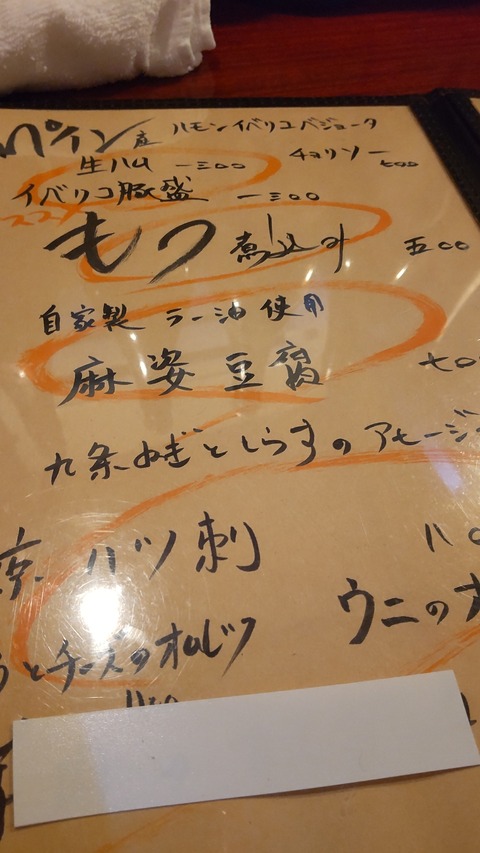 ペイン産 ハモンイベリコベジョータ
生ハム 一三〇〇 チョリソー 七〇〇
イベリコ豚盛 一三〇〇
もつ煮込み 五〇〇
自家製 ラー油 使用
麻婆豆腐 七〇
九条ねぎとしらすのアヒージ
ハツ刺 八〇
とチーズのオムレツ ウニの
八〇〇